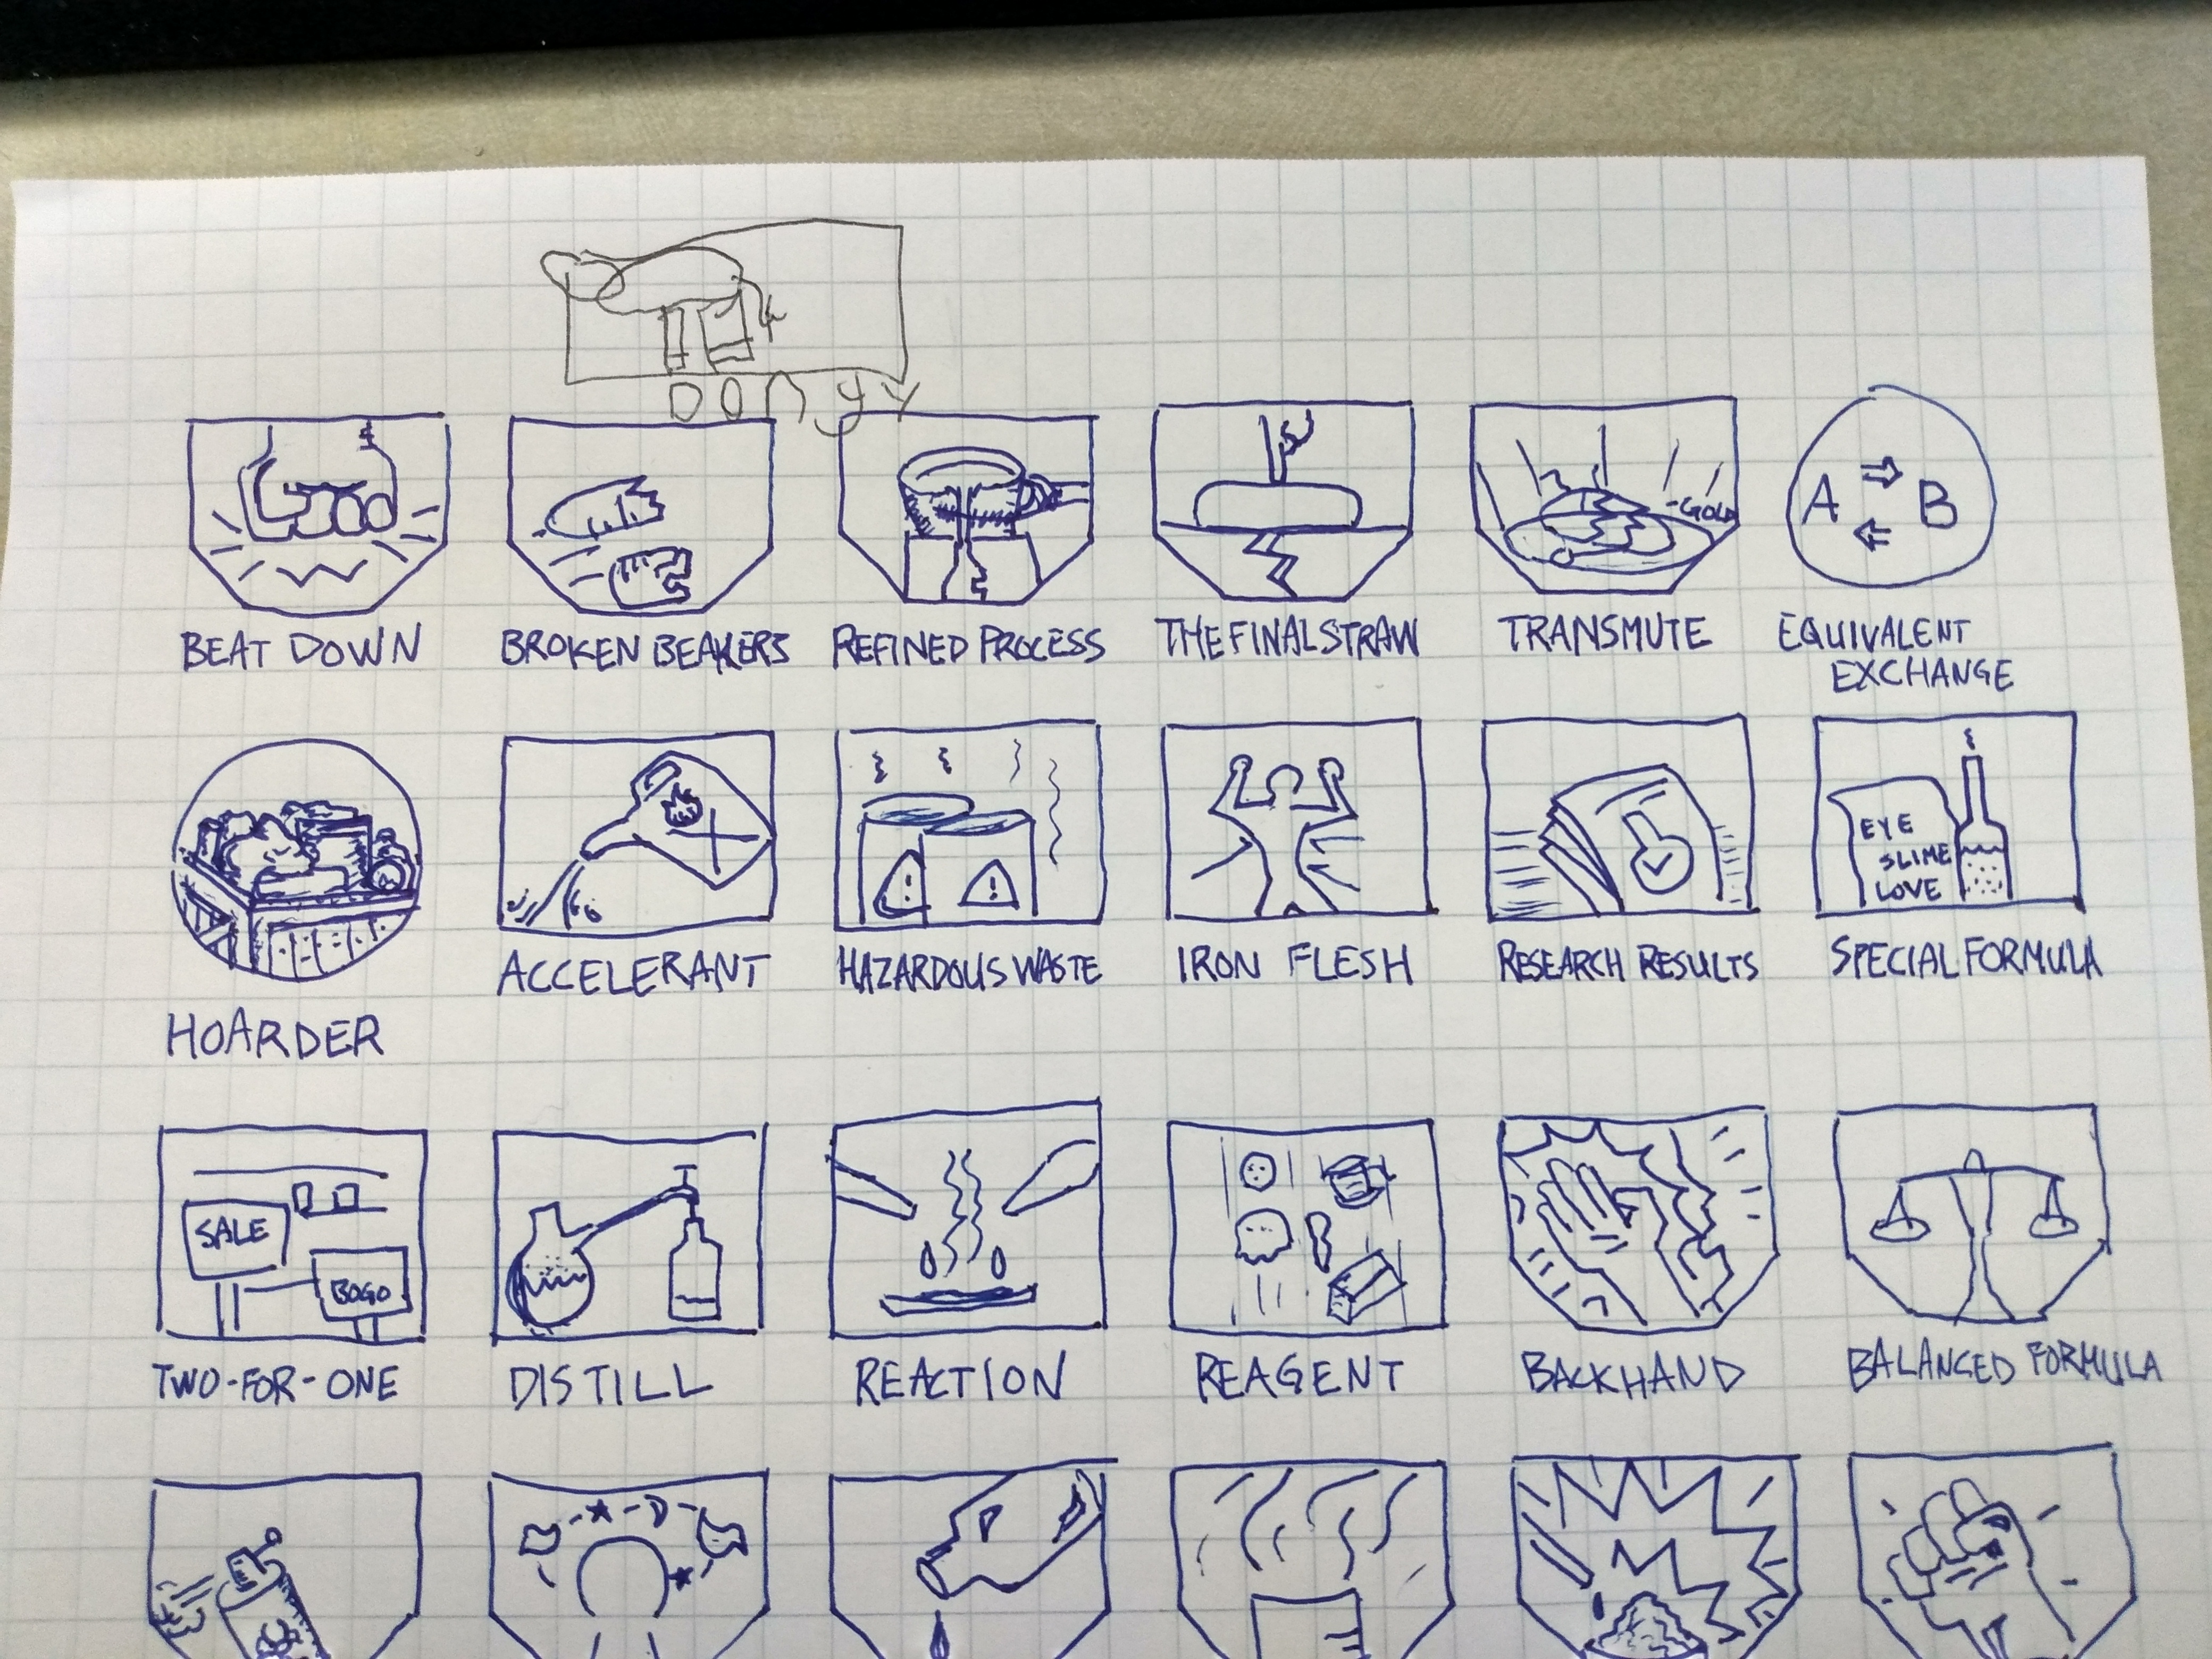 DONYY
BEAT DOWN
BROKEN BEAKERS
REFINED PROCESS
THE FINAL STRAW
-GOLD
TRANSMUTE
A B
EQUIVALENT
EXCHANGE
HOARDER
ACCELERANT
! !
HAZARDOUS WASTE
IRON FLESH
RESEARCH RESULTS
EYE
SLIME
LOVE
SPECIAL FORMULA
SALE
BOGO
TWO-FOR-ONE
DISTILL
REACTION
REAGENT
BACKHAND
BALANCED FORMULA